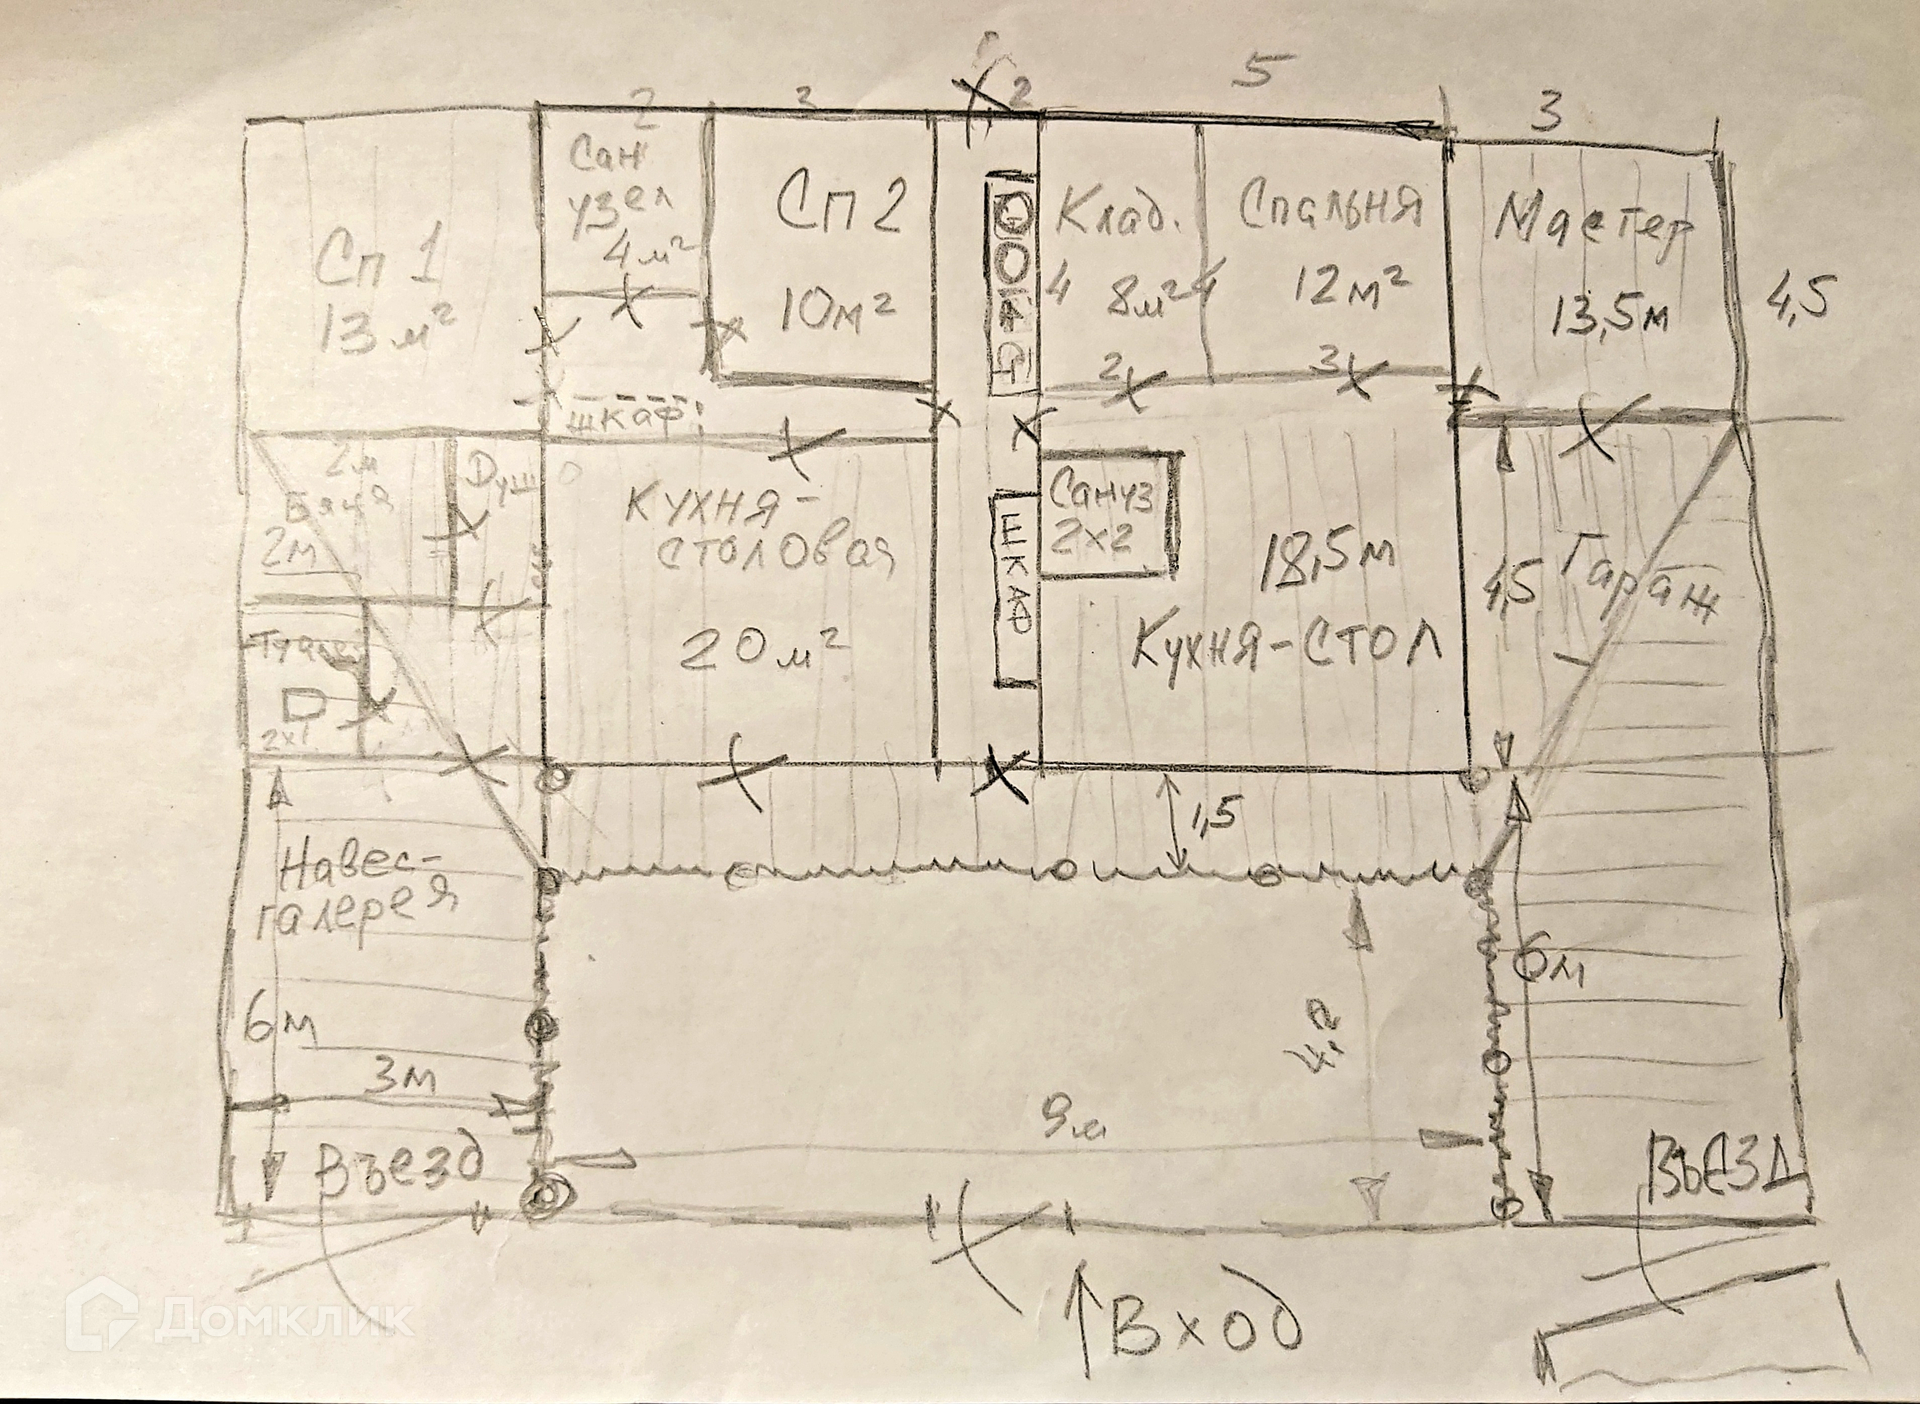 2
3
2
5
3
Сан
узел
4м²
Сп 1
13м²
Сп 2
10м²
Клад.
4
8м²
4
2
Спальня
12м²
3
Мастер
13,5м
4,5
шкаф
2м
Баня
2м
Душ
Туалет
2х1
Кухня-
столовая
20м²
ШКАФ
Сануз
2х2
18,5м
Кухня-стол
4,5
Гараж
1,5
Навес-
галерея
6м
3м
Въезд
9м
4,2
6м
Въезд
Вход
Домклик